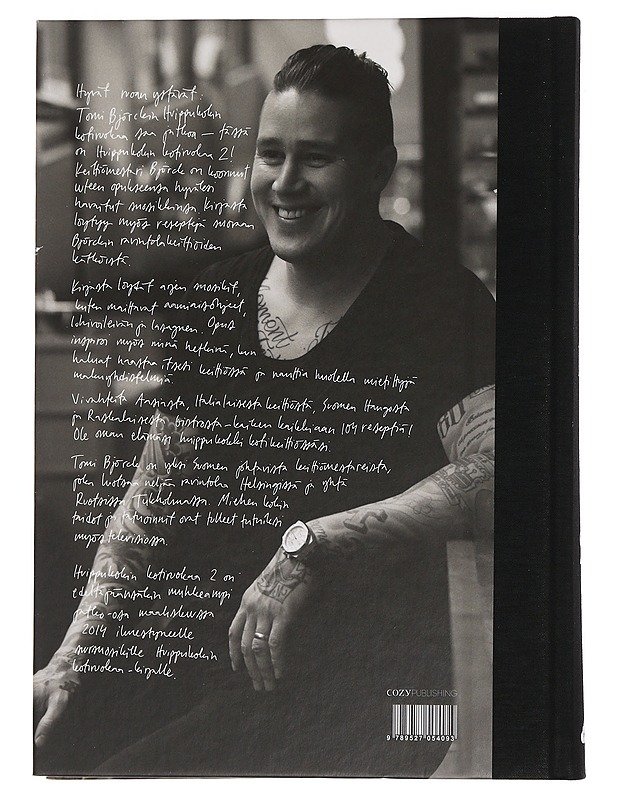 Hyvät ruoan ystävät.
Tomi Björckin Huippukokin
kotiruokaa saa jatkoa – tässä
on Huippukokin kotiruokaa 2!
Keittiömestari Björck on koonnut
uuteen opukseensa hyväksi
havaitut suosikkinsa. Kirjasta
löytyy myös reseptejä suoraan
Björckin ravintolakeittiöiden
kätköistä.
Kirjasta löydät arjen suosikit,
kuten maittavat aamiaisohjeet,
lohivoileivän ja lasagnen. Opus
inspiroi myös niinä hetkinä, kun
haluat haastaa itsesi keittiössä ja nauttia huolella mietittyjä
makuyhdistelmiä.
Vivahteita Aasiasta, Italialaisesta keittiöstä, Suomen Hangosta
ja Ranskalaisesta bistrosta – kaiken kaikkiaan 104 reseptiä!
Ole oman elämäsi huippukokki kotikeittiössäsi.
Tomi Björck on yksi Suomen johtavista keittiömestareista,
joka luotsaa neljää ravintolaa Helsingissä ja yhtä
Ruotsissa, Tukholmassa. Miehen kokin
taidot ja tatuoinnit ovat tulleet tutuiksi
myös televisiossa.
Huippukokin kotiruokaa 2 on
edeltäjäänsäkin muhkeampi
jatko-osa maaliskuussa
2014 ilmestyneelle
suursuosikille Huippukokin
kotiruokaa -kirjalle.
COZYPUBLISHING
9 789527 054093